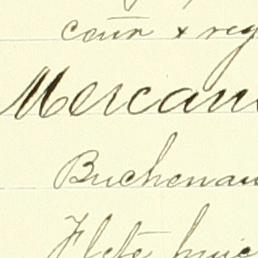 coún x reg
Mercan
Buchenau
Flete huie